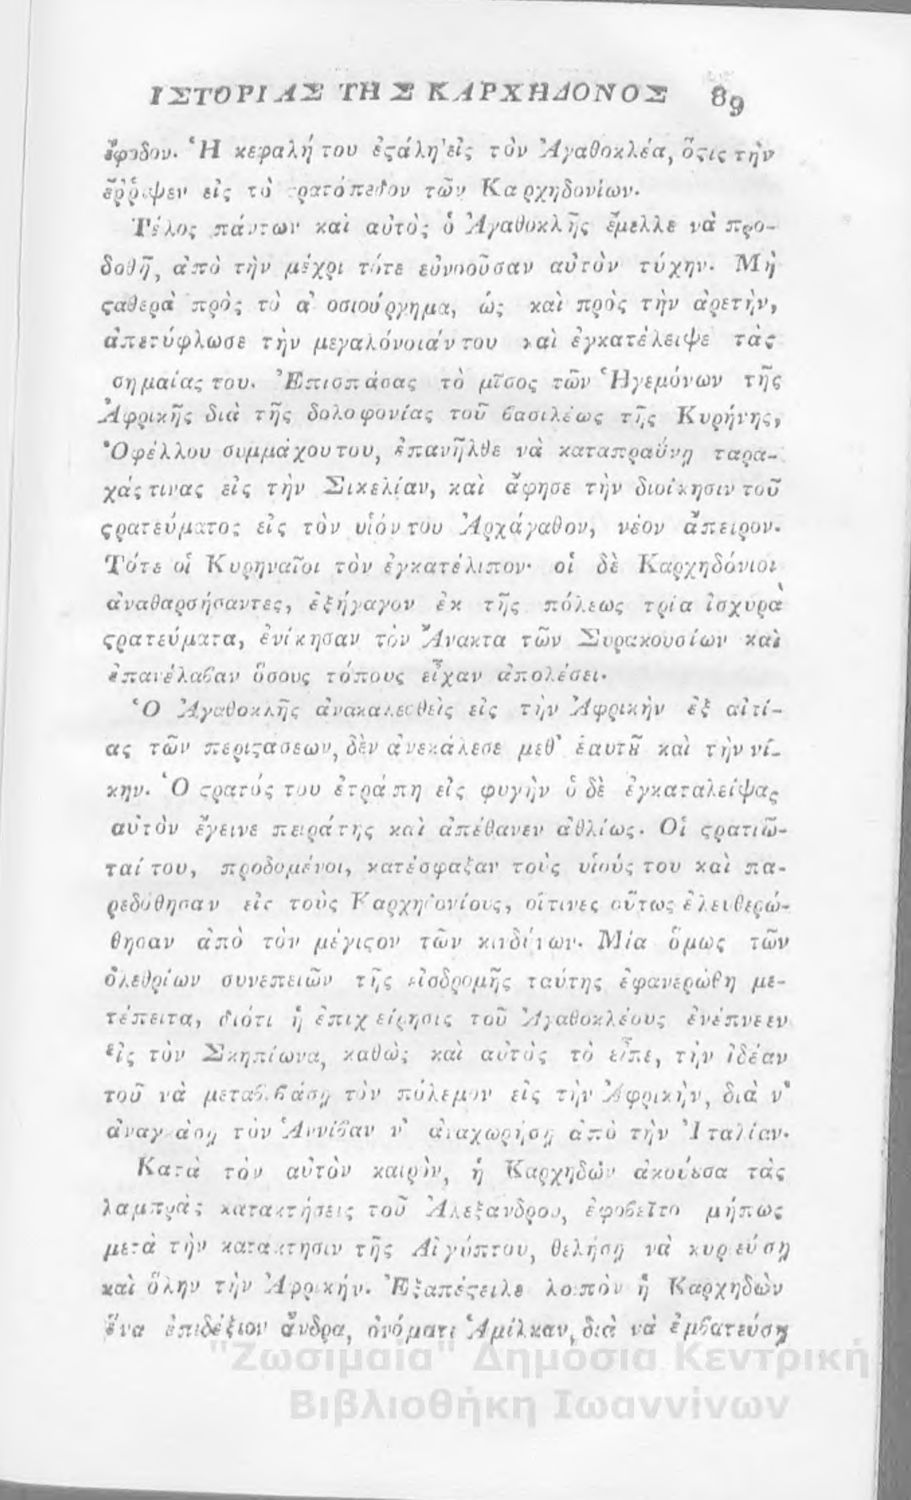 ΙΣΤΟΡΙΑΣ ΤΗΣ ΚΑΡΧΗΔΟΝΟΣ 89
ἔφοδον. Ἡ κεφαλή του ἐϛάλη εἰς τὸν Ἀγαθοκλέα, ὅϛις τὴν
ἔῤῥιψεν εἰς τὸ ϛρατόπεδον τῶν Καρχηδονίων.
Τέλος πάντων καὶ αὐτὸς ὁ Ἀγαθοκλῆς ἔμελλε νὰ προ-
δοθῇ, ἀπὸ τὴν μέχρι τότε εὐνοοῦσαν αὐτὸν τύχην. Μὴ
ϛαθερὰ πρὸς τὸ ἀνοσιούργημα, ὡς καὶ πρὸς τὴν ἀρετὴν,
ἀπετύφλωσε τὴν μεγαλόνοιάν του καὶ ἐγκατέλειψε τὰς
σημαίας του. Ἐπισπάσας τὸ μῖσος τῶν Ἡγεμόνων τῆς
Ἀφρικῆς διὰ τῆς δολοφονίας τοῦ βασιλέως τῆς Κυρήνης,
Ὀφέλλου συμμάχου του, ἐπανῆλθε νὰ καταπραΰνῃ ταρα-
χάς τινας εἰς τὴν Σικελίαν, καὶ ἄφησε τὴν διοίκησιν τοῦ
ϛρατεύματος εἰς τὸν υἱόν του Ἀρχάγαθον, νέον ἄπειρον.
Τότε οἱ Κυρηναῖοι τὸν ἐγκατέλιπον· οἱ δὲ Καρχηδόνιοι
ἀναθαρσήσαντες, ἐξήγαγον ἐκ τῆς πόλεως τρία ἰσχυρὰ
ϛρατεύματα, ἐνίκησαν τὸν Ἄνακτα τῶν Συρακουσίων καὶ
ἐπανέλαβαν ὅσους τόπους εἶχαν ἀπολέσει.
Ὁ Ἀγαθοκλῆς ἀνακαλεσθεὶς εἰς τὴν Ἀφρικὴν ἐξ αἰτί-
ας τῶν περιϛάσεων, δὲν ἀνεκάλεσε μεθ' ἑαυτȣ͂ καὶ τὴν νί-
κην. Ὁ ϛρατός του ἐτράπη εἰς φυγὴν ὁ δὲ ἐγκαταλείψας
αὐτὸν ἔγεινε πειράτης καὶ ἀπέθανεν ἀθλίως. Οἱ ϛρατιῶ-
ταί του, προδομένοι, κατέσφαξαν τοὺς υἱούς του καὶ πα-
ρεδόθησαν εἰς τοὺς Καρχηδονίους, οἵτινες οὕτως ἐλευθερώ-
θησαν ἀπὸ τὸν μέγιϛον τῶν κινδύνων. Μία ὅμως τῶν
ὀλεθρίων συνεπειῶν τῆς εἰσδρομῆς ταύτης ἐφανερώθη με-
τέπειτα, διότι ἡ ἐπιχείρησις τοῦ Ἀγαθοκλέους ἐνέπνευεν
εἰς τὸν Σκηπίωνα, καθὼς καὶ αὐτὸς τὸ εἶπε, τὴν ἰδέαν
τοῦ νὰ μεταβιβάσῃ τὸν πόλεμον εἰς τὴν Ἀφρικὴν, διὰ ν'
ἀναγκάσῃ τὸν Ἀννίβαν ν' ἀναχωρήσῃ ἀπὸ τὴν Ἰταλίαν.
Κατὰ τὸν αὐτὸν καιρὸν, ἡ Καρχηδὼν ἀκούουσα τὰς
λαμπρὰς κατακτήσεις τοῦ Ἀλεξάνδρου, ἐφοβεῖτο μήπως
μετὰ τὴν κατάκτησιν τῆς Αἰγύπτου, θελήσῃ νὰ κυριεύσῃ
καὶ ὅλην τὴν Ἀφρικήν. Ἐξαπέϛειλε λοιπὸν ἡ Καρχηδὼν
ἕνα ἐπιδέξιον ἄνδρα, ὀνόματι Ἀμίλκαν, διὰ νὰ ἐμβατεύσῃ
"Ζωσιμαία" Δημόσια Κεντρική
Βιβλιοθήκη Ιωαννίνων